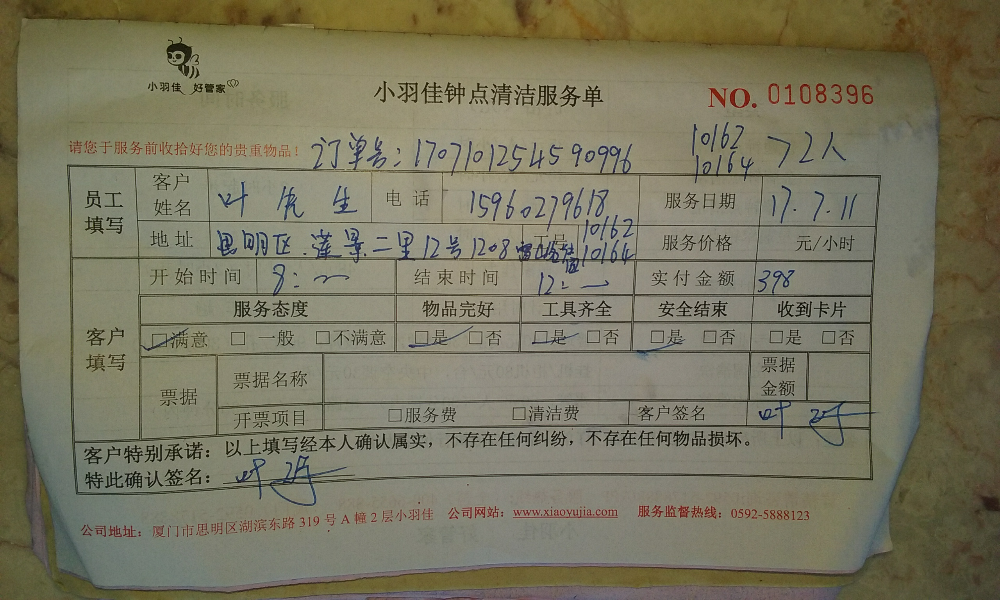 小羽佳 好管家
小羽佳钟点清洁服务单
NO. 0108396
请您于服务前收拾好您的贵重物品!
订单号:170710125459 0996
10162
10164 >2人
员工填写 客户姓名 叶 先 生 电话 15960279618 服务日期 17.7.11
地址 思明区.莲景二里12号1208 工号 10162 10164 服务价格 元/小时
客户填写 开始时间 8: 结束时间 12: 实付金额 398
服务态度 物品完好 工具齐全 安全结束 收到卡片
□满意 □一般 □不满意 □是 □否 □是 □否 □是 □否 □是 □否
票据 票据名称 票据金额
开票项目 □服务费 □清洁费 客户签名 叶
客户特别承诺:以上填写经本人确认属实,不存在任何纠纷,不存在任何物品损坏。
特此确认签名: 叶
公司地址:厦门市思明区湖滨东路319号A幢2层小羽佳 公司网站:www.xiaoyujia.com 服务监督热线:0592-5888123